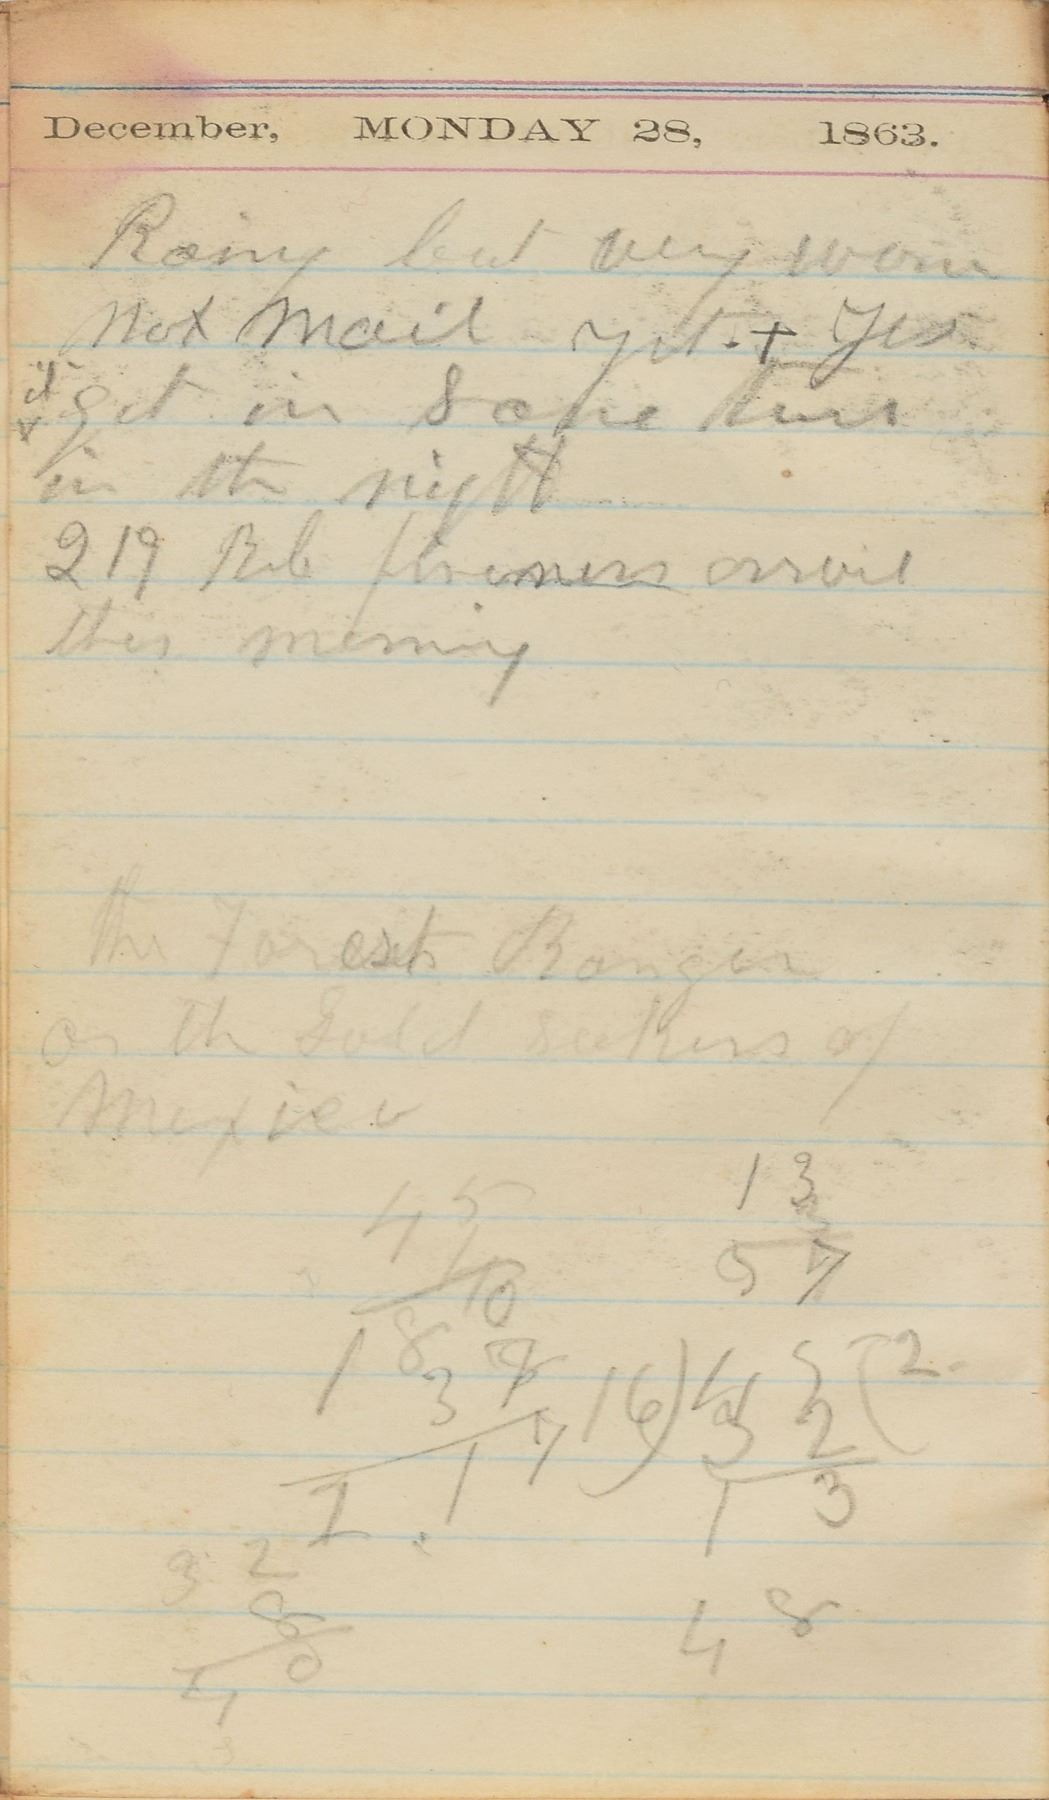 December, MONDAY 28, 1863.
Rainy but very warm
Not Mail yet. + Yes
it get in Some time
in the night
219 Reb arvil
this morning
The Forest Ranger
or the Gold seekers of
Mexico
13
45 3
57
10
18
3 7 16) 45 (2
32
1 17
13
32
8 48
40